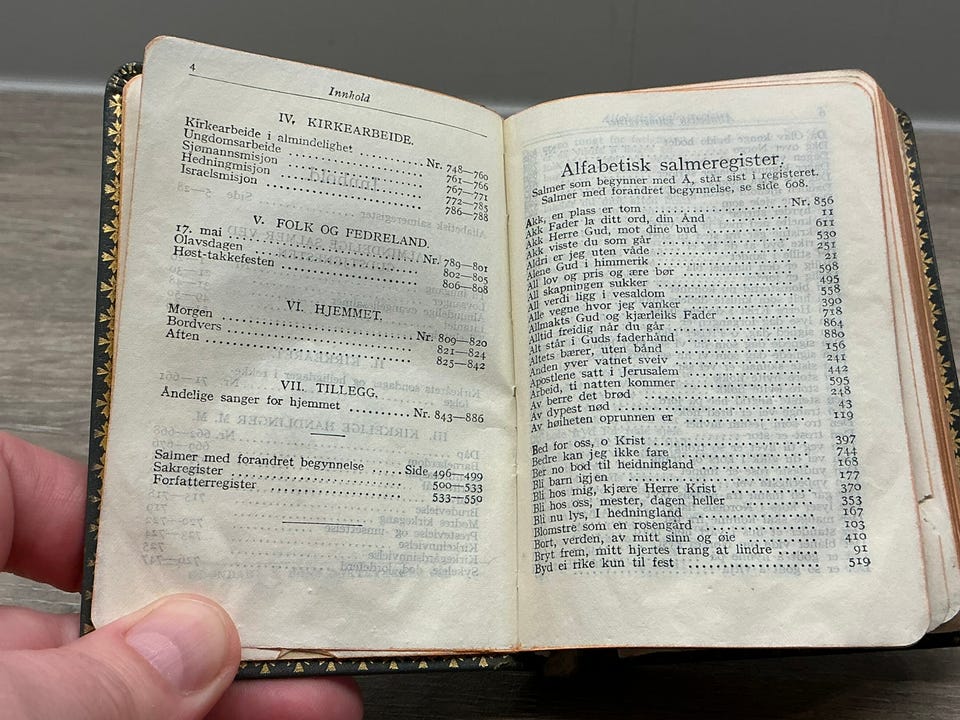 4
Innhold
IV. KIRKEARBEIDE.
Kirkearbeide i almindelighet ........ Nr. 748—760
Ungdomsarbeide ........ 761—766
Sjømannsmisjon ........ 767—771
Hedningmisjon ........ 772—785
Israelsmisjon ........ 786—788
V. FOLK OG FEDRELAND.
17. mai ........ Nr. 789—801
Olavsdagen ........ 802—805
Høst-takkefesten ........ 806—808
VI. HJEMMET.
Morgen ........ Nr. 809—820
Bordvers ........ 821—824
Aften ........ 825—842
VII. TILLEGG.
Åndelige sanger for hjemmet ........ Nr. 843—886
Salmer med forandret begynnelse ..... Side 496—499
Sakregister ........ 500—533
Forfatterregister ........ 533—550
Alfabetisk salmeregister.
Salmer som begynner med Å, står sist i registeret.
Salmer med forandret begynnelse, se side 608.
Akk, en plass er tom ........ Nr. 856
Akk Fader la ditt ord, din Ånd ........ 11
Akk Herre Gud, mot dine bud ........ 611
Akk visste du som går ........ 530
Aldri er jeg uten våde ........ 251
Alene Gud i himmerik ........ 21
All lov og pris og ære bør ........ 598
All skapningen sukker ........ 495
All verdi ligg i vesaldom ........ 558
Alle vegne hvor jeg vanker ........ 390
Allmakts Gud og kjærleiks Fader ........ 718
Alltid freidig når du går ........ 864
Alt står i Guds faderhånd ........ 880
Altets bærer, uten bånd ........ 156
Anden yver vatnet sveiv ........ 241
Apostlene satt i Jerusalem ........ 442
Arbeid, ti natten kommer ........ 595
Av berre det brød ........ 248
Av dypest nød ........ 43
Av høiheten oprunnen er ........ 119
Bed for oss, o Krist ........ 397
Bedre kan jeg ikke fare ........ 744
Ber no bod til heidningland ........ 168
Bli barn igjen ........ 177
Bli hos mig, kjære Herre Krist ........ 370
Bli hos oss, mester, dagen heller ........ 353
Bli nu lys, I hedningland ........ 167
Blomstre som en rosengård ........ 103
Bort, verden, av mitt sinn og øie ........ 410
Bryt frem, mitt hjertes trang at lindre ........ 91
Byd ei rike kun til fest ........ 519